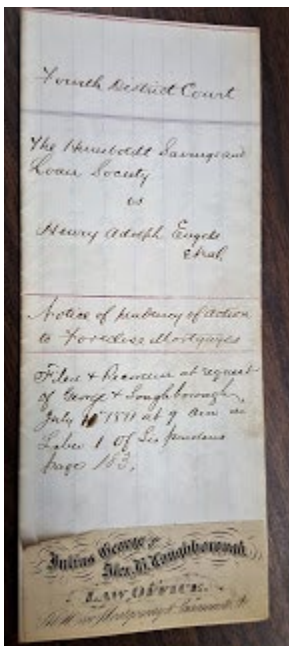 Fourth District Court
The Humboldt Savings and
Loan Society
vs
Henry Adolph Engels
et al.
Notice of pendency of action
to Foreclose Mortgages
Filed & Recorded at request
of George & Loughborough
July 1871 at 9 am in
Liber 1 of Lis pendens
page 183.
Julius George &
Alex. H. Loughborough
LAW OFFICE.
Montgomery &